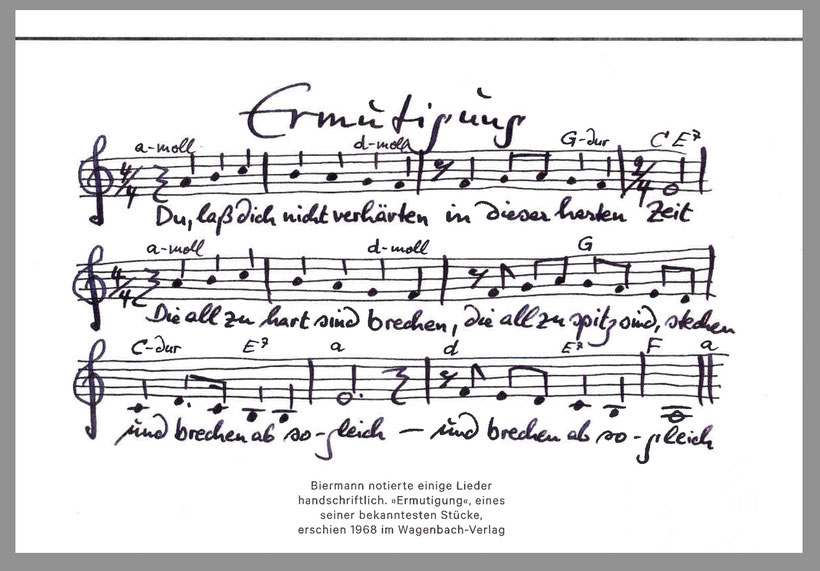 Ermutigung
a-moll d-moll G-dur C E⁷
4/4 2/4
Du, laß dich nicht verhärten in dieser harten Zeit
a-moll d-moll G
4/4
Die all zu hart sind brechen, die all zu spitz sind, stechen
C-dur E⁷ a d E⁷ F a
und brechen ab so-gleich — und brechen ab so-gleich
Biermann notierte einige Lieder
handschriftlich. »Ermutigung«, eines
seiner bekanntesten Stücke,
erschien 1968 im Wagenbach-Verlag